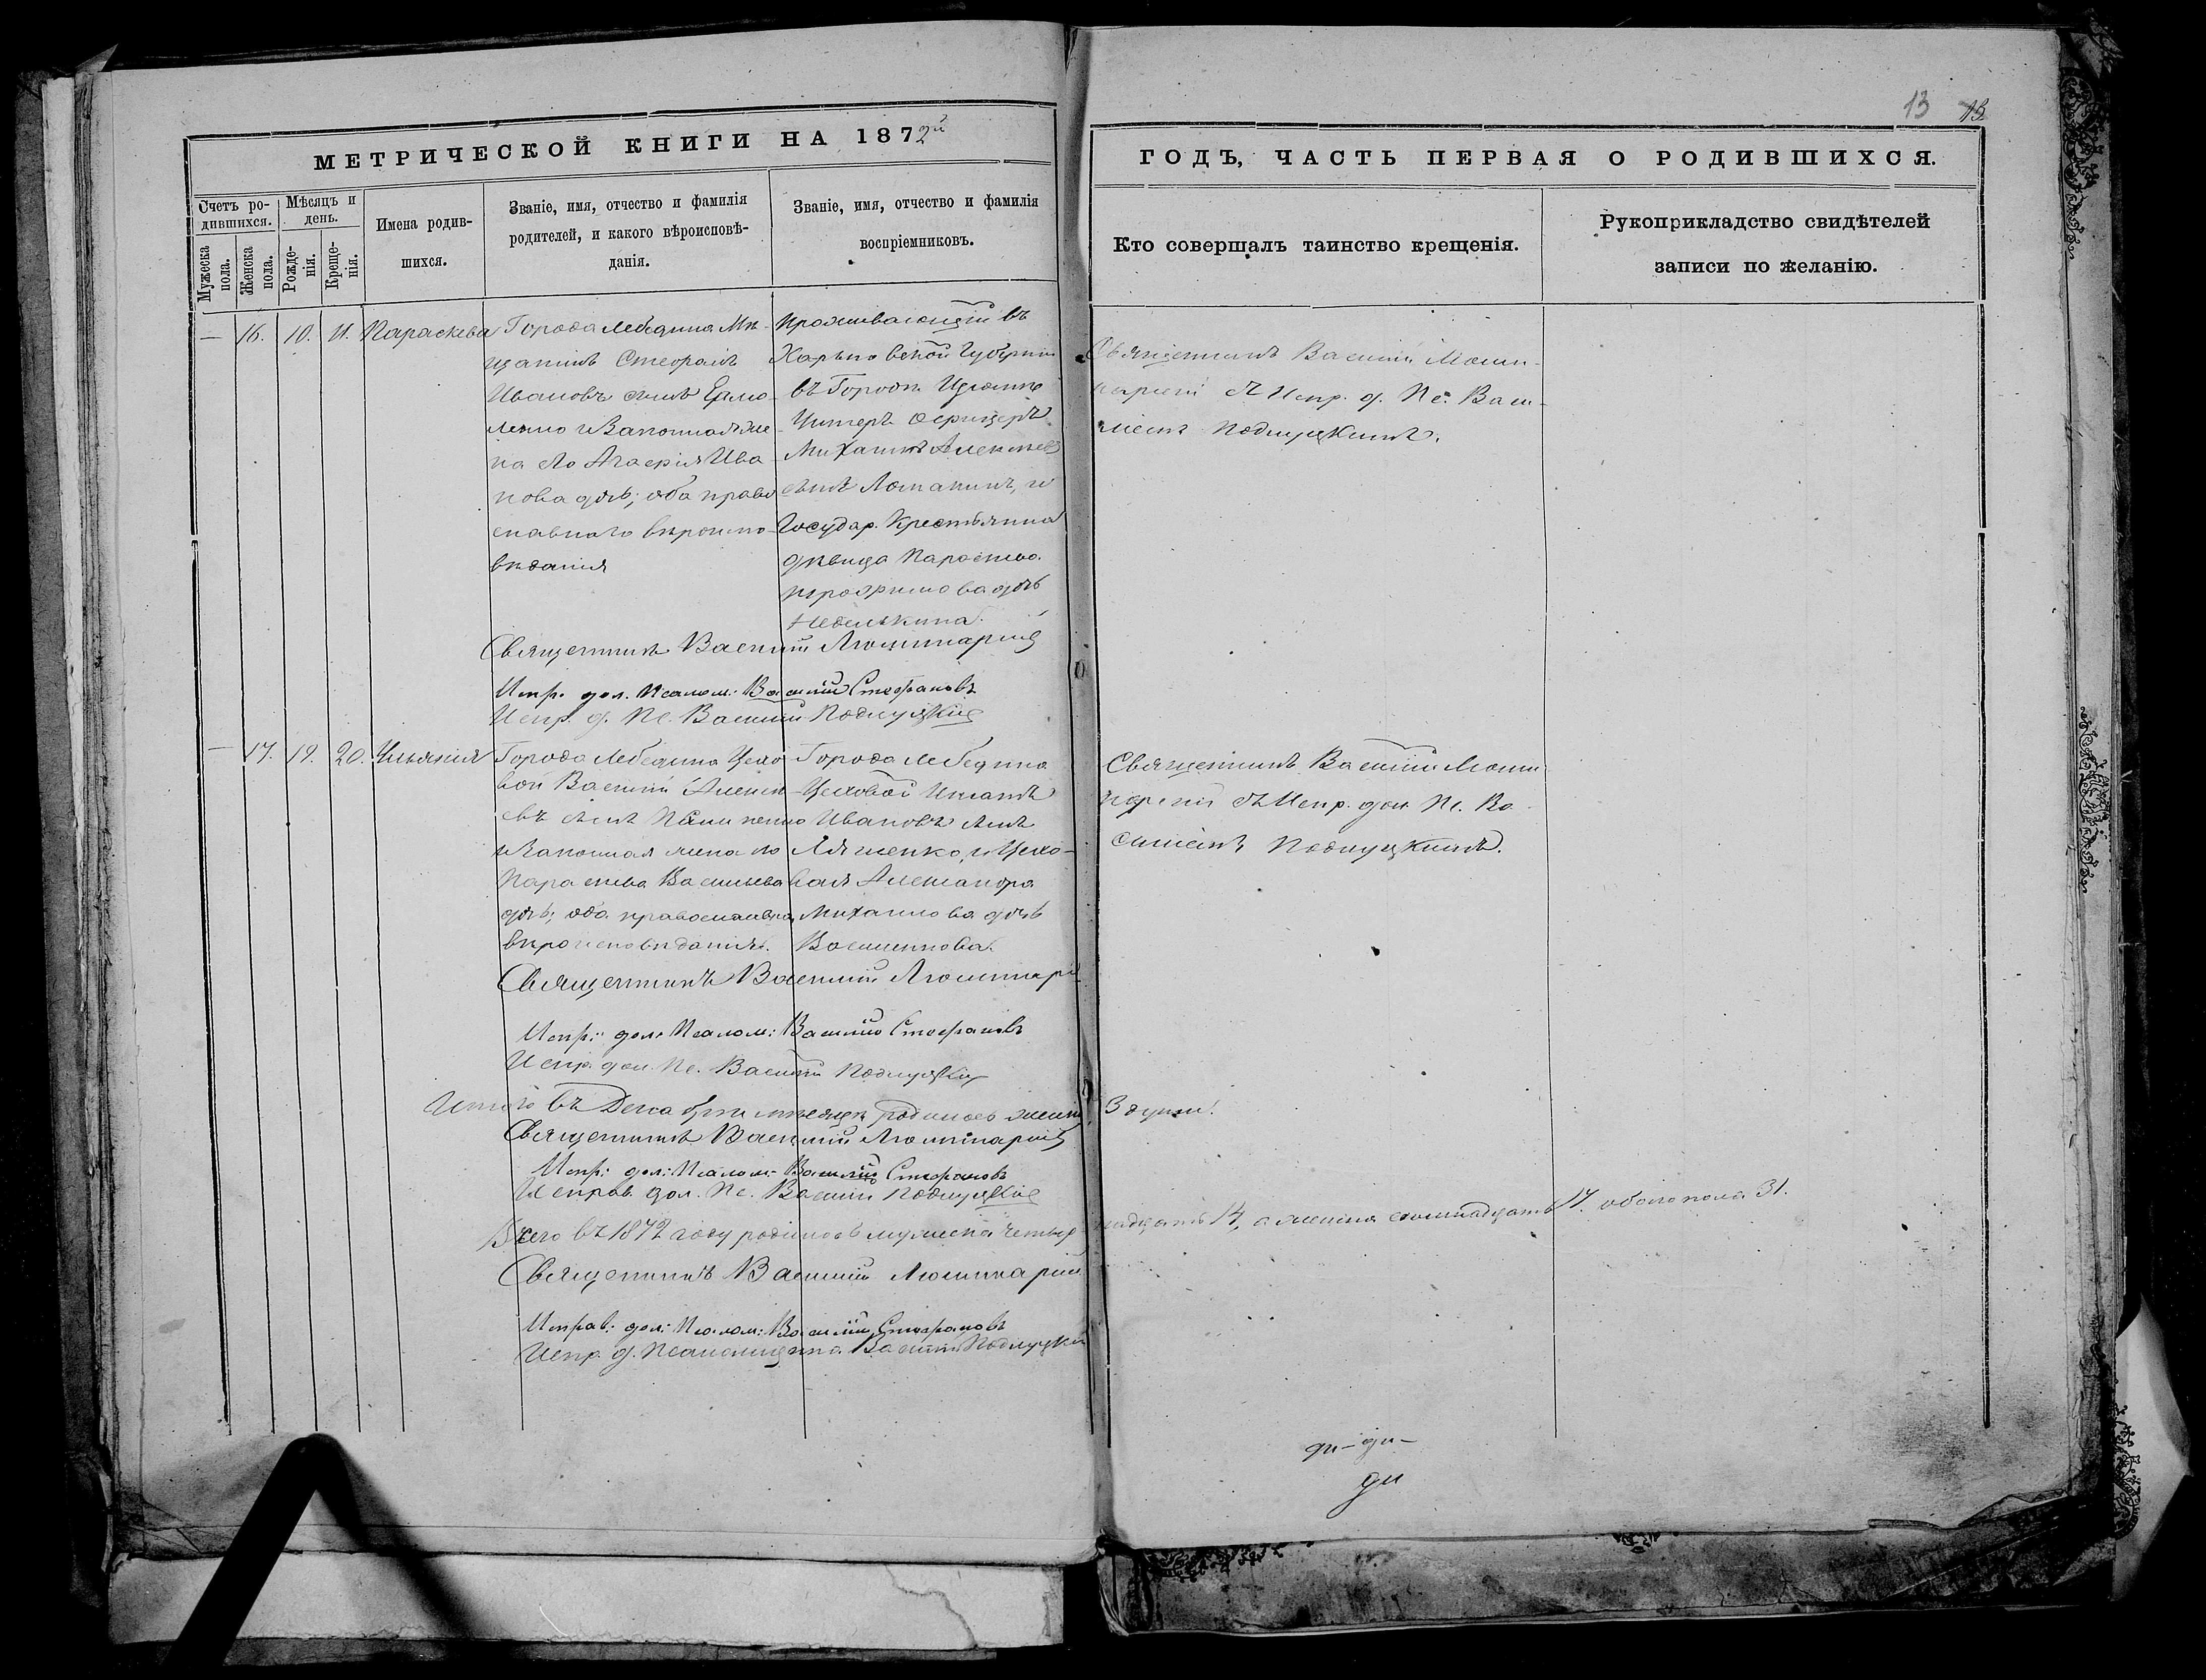 13 13
МЕТРИЧЕСКОЙ КНИГИ НА 1872й
ГОДЪ, ЧАСТЬ ПЕРВАЯ О РОДИВШИХСЯ.
Счетъ ро-
дившихся.
Мужеска
пола.
Женска
пола.
Мѣсяцъ и
день.
Рожде-
нія.
Креще-
нія.
Имена родив-
шихся.
Званіе, имя, отчество и фамилія
родителей, и какого вѣроисповѣ-
данія.
Званіе, имя, отчество и фамилія
воспріемниковъ.
Кто совершалъ таинство крещенія.
Рукоприкладство свидѣтелей
записи по желанію.
— 16. 10. 11. Параскева
Города Лебедина Мѣ-
щанинъ Стефанъ
Ивановъ сынъ Ермо-
ленко и Законная же-
на его Агафія Ива
нова дочь; оба право
славнаго вѣроиспо-
вѣданія
Проживающій въ
Харьковской Губерніи
въ Городѣ
Унтеръ Офицеръ
Михаилъ Алексѣевъ
сынъ и
Государ. Крестьянка
дѣвица Параскева
Трофимова дочь
Неделькина.
Священникъ Василій
съ Испр. д. Пс. Васи-
ліемъ Подлуцкимъ.
Священникъ Василій
Испр. дол. Псалом: Василій Стефановъ
Испр. д. Пс. Василій Подлуцкій
— 17. 19. 20. Иуліанія
Города Лебедина Цехо
вой Василій Алексѣ-
евъ сынъ
и Законная жена его
Параскева Васильева
дочь; оба православна
вѣроисповѣданія.
Города Лебедина
Цеховой Игнатъ
Ивановъ сынъ
Ляшенко, и Цехо-
вая Александра
Михаилова дочь
Священникъ Василій
съ Испр. дол. Пс. Ва
силіемъ Подлуцкимъ.
Священникъ Василій
Испр: дол: Псалом: Василій Стефановъ
Испр. дол. Пс. Василій Подлуцкій
Итого въ Декабрѣ мѣсяцѣ родилось женска 3 души.
Священникъ Василій
Испр: дол: Псалом: Василій Стефановъ
Исправ. дол. Пс. Василій Подлуцкій
Всего въ 1872 году родилось мужеска четыр надцать 14, а женска семнадцать 17. обоего пола 31.
Священникъ Василій
Исправ: дол: Псалом: Василій Стефановъ
Испр. д. Псаломщика Василій Подлуцкій